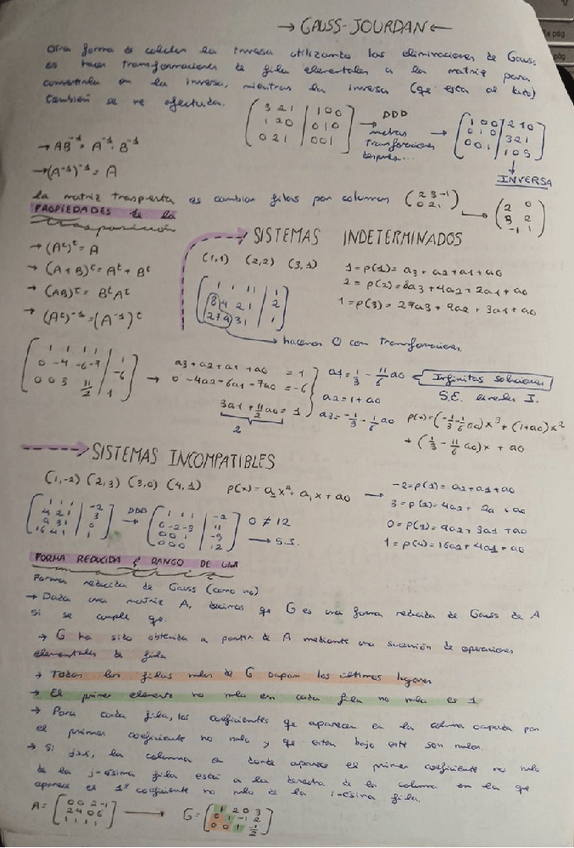 → GAUSS-JOURDAN ←
Otra forma de calcular la inversa utilizando las eliminaciones de Gauss
es hacer transformaciones de fila elementales a la matriz para
convertirla en la inversa, mientras la inversa (qe esta al lado)
también se ve afectada.
(3 2 1 | 1 0 0
1 2 0 | 0 1 0
0 2 1 | 0 0 1) → DDD → (1 0 0 | 2 1 0
muchas
transformaciones
después...
→ AB⁻¹ = A⁻¹ · B⁻¹
→ (A⁻¹)⁻¹ = A
INVERSA
la matriz traspuesta es cambiar filas por columnas (2 3 -1
0 2 1) → (2 0
3 2
-1 1)
PROPIEDADES de la
trasposición
→ (Aᵗ)ᵗ = A
→ (A+B)ᵗ = Aᵗ + Bᵗ
→ (AB)ᵗ = BᵗAᵗ
→ (Aᵗ)⁻¹ = (A⁻¹)ᵗ
SISTEMAS INDETERMINADOS
(1,1) (2,2) (3,1)
1 = p(1) = a3 + a2 + a1 + a0
2 = p(2) = 8a3 + 4a2 + 2a1 + a0
1 = p(3) = 27a3 + 9a2 + 3a1 + a0
hacemos 0 con transformaciones
a3 + a2 + a1 + a0 = 1
0 - 4a2 - 6a1 - 7a0 = -6
3a1 + 11/2 a0 = 1
2
a1 = 1/3 - 11/6 a0
a2 = 1 + a0
a3 = -1/3 - 1/6 a0
← Infinitas soluciones
p(x) = (-1/3 - 1/6 a0)x³ + (1+a0)x²
+ (1/3 - 11/6 a0)x + a0
SISTEMAS INCOMPATIBLES
(1,-2) (2,3) (3,0) (4,1) p(x) = a2x² + a1x + a0 →
-2 = p(1) = a2 + a1 + a0
3 = p(2) = 4a2 + 2a1 + a0
0 = p(3) = 9a2 + 3a1 + a0
1 = p(4) = 16a2 + 4a1 + a0
(1 1 1 | -2
4 2 1 | 3
9 3 1 | 0
16 4 1 | 1) DDD → (1 1 1 | -2
0 -2 -3 | 11
0 0 1 | -9
0 0 0 | 12)
0 ≠ 12
→ S.I.
FORMA REDUCIDA & RANGO DE UNA
matriz
Forma reducida de Gauss (como no)
→ Dada una matriz A, decimos qe G es una forma reducida de Gauss de A
si se cumple qe:
→ G ha sido obtenida a partir de A mediante una sucesión de operaciones
elementales de fila
→ Todas las filas nulas de G ocupan los últimos lugares
→ El primer elemento no nulo en cada fila no nula es 1
→ Para cada fila, los coeficientes qe aparecen en la columna ocupada por
el primer coeficiente no nulo y qe estén bajo este son nulos.
→ Si j>i, la columna en donde aparece el primer coeficiente no nulo
de la j-ésima fila está a la derecha de la columna en la qe
aparece el 1º coeficiente no nulo de la i-ésima fila.
A = [0 0 2 -1
2 4 0 6
1 1 1 1] → G = [1 2 0 3
0 1 -1 2
0 0 1 -1/2]